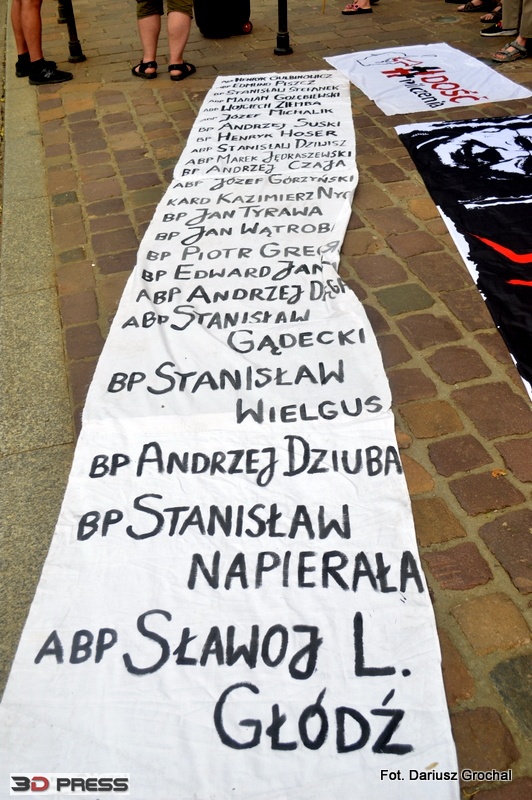 ABP HENRYK GULBINOWICZ
BP EDMUND PISZCZ
BP STANISŁAW STEFANEK
ABP MARIAN GOŁĘBIEWSKI
ABP WOJCIECH ZIEMBA
ABP JÓZEF MICHALIK
BP ANDRZEJ SUSKI
BP HENRYK HOSER
ABP STANISŁAW DZIWISZ
ABP MAREK JĘDRASZEWSKI
BP ANDRZEJ CZAJA
ABP JÓZEF GÓRZYŃSKI
KARD KAZIMIERZ NYC
BP JAN TYRAWA
BP JAN WĄTROB
BP PIOTR GREG
BP EDWARD JAN
ABP ANDRZEJ DZIĘGA
ABP STANISŁAW
GĄDECKI
BP STANISŁAW
WIELGUS
BP ANDRZEJ DZIUBA
BP STANISŁAW
NAPIERAŁA
ABP SŁAWOJ L.
GŁÓDŹ
3D PRESS
Fot. Dariusz Grochal